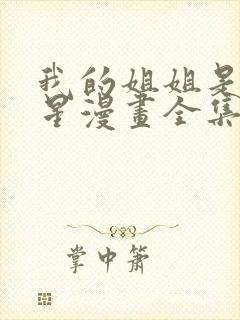 我的姐姐是
星漫畫全集
掌中簫